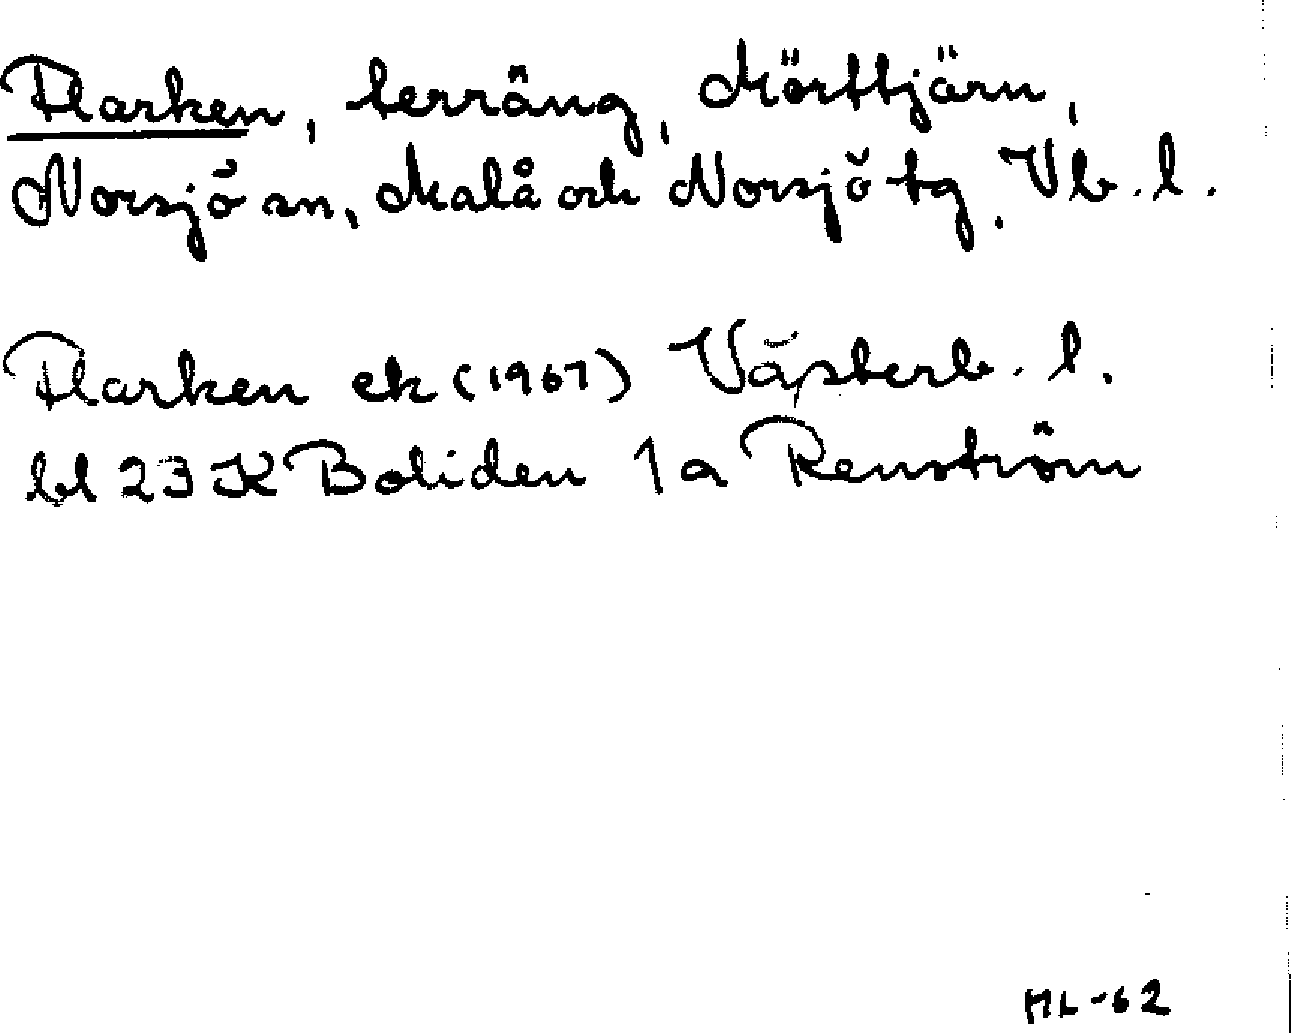 Flarken, terräng, Mörttjärn,
Norsjö sn, Malå och Norsjö tg, Vb. l.
Flarken ek (1967) Västerb. l.
bl 23 K Boliden 1 a Renström
ML-62